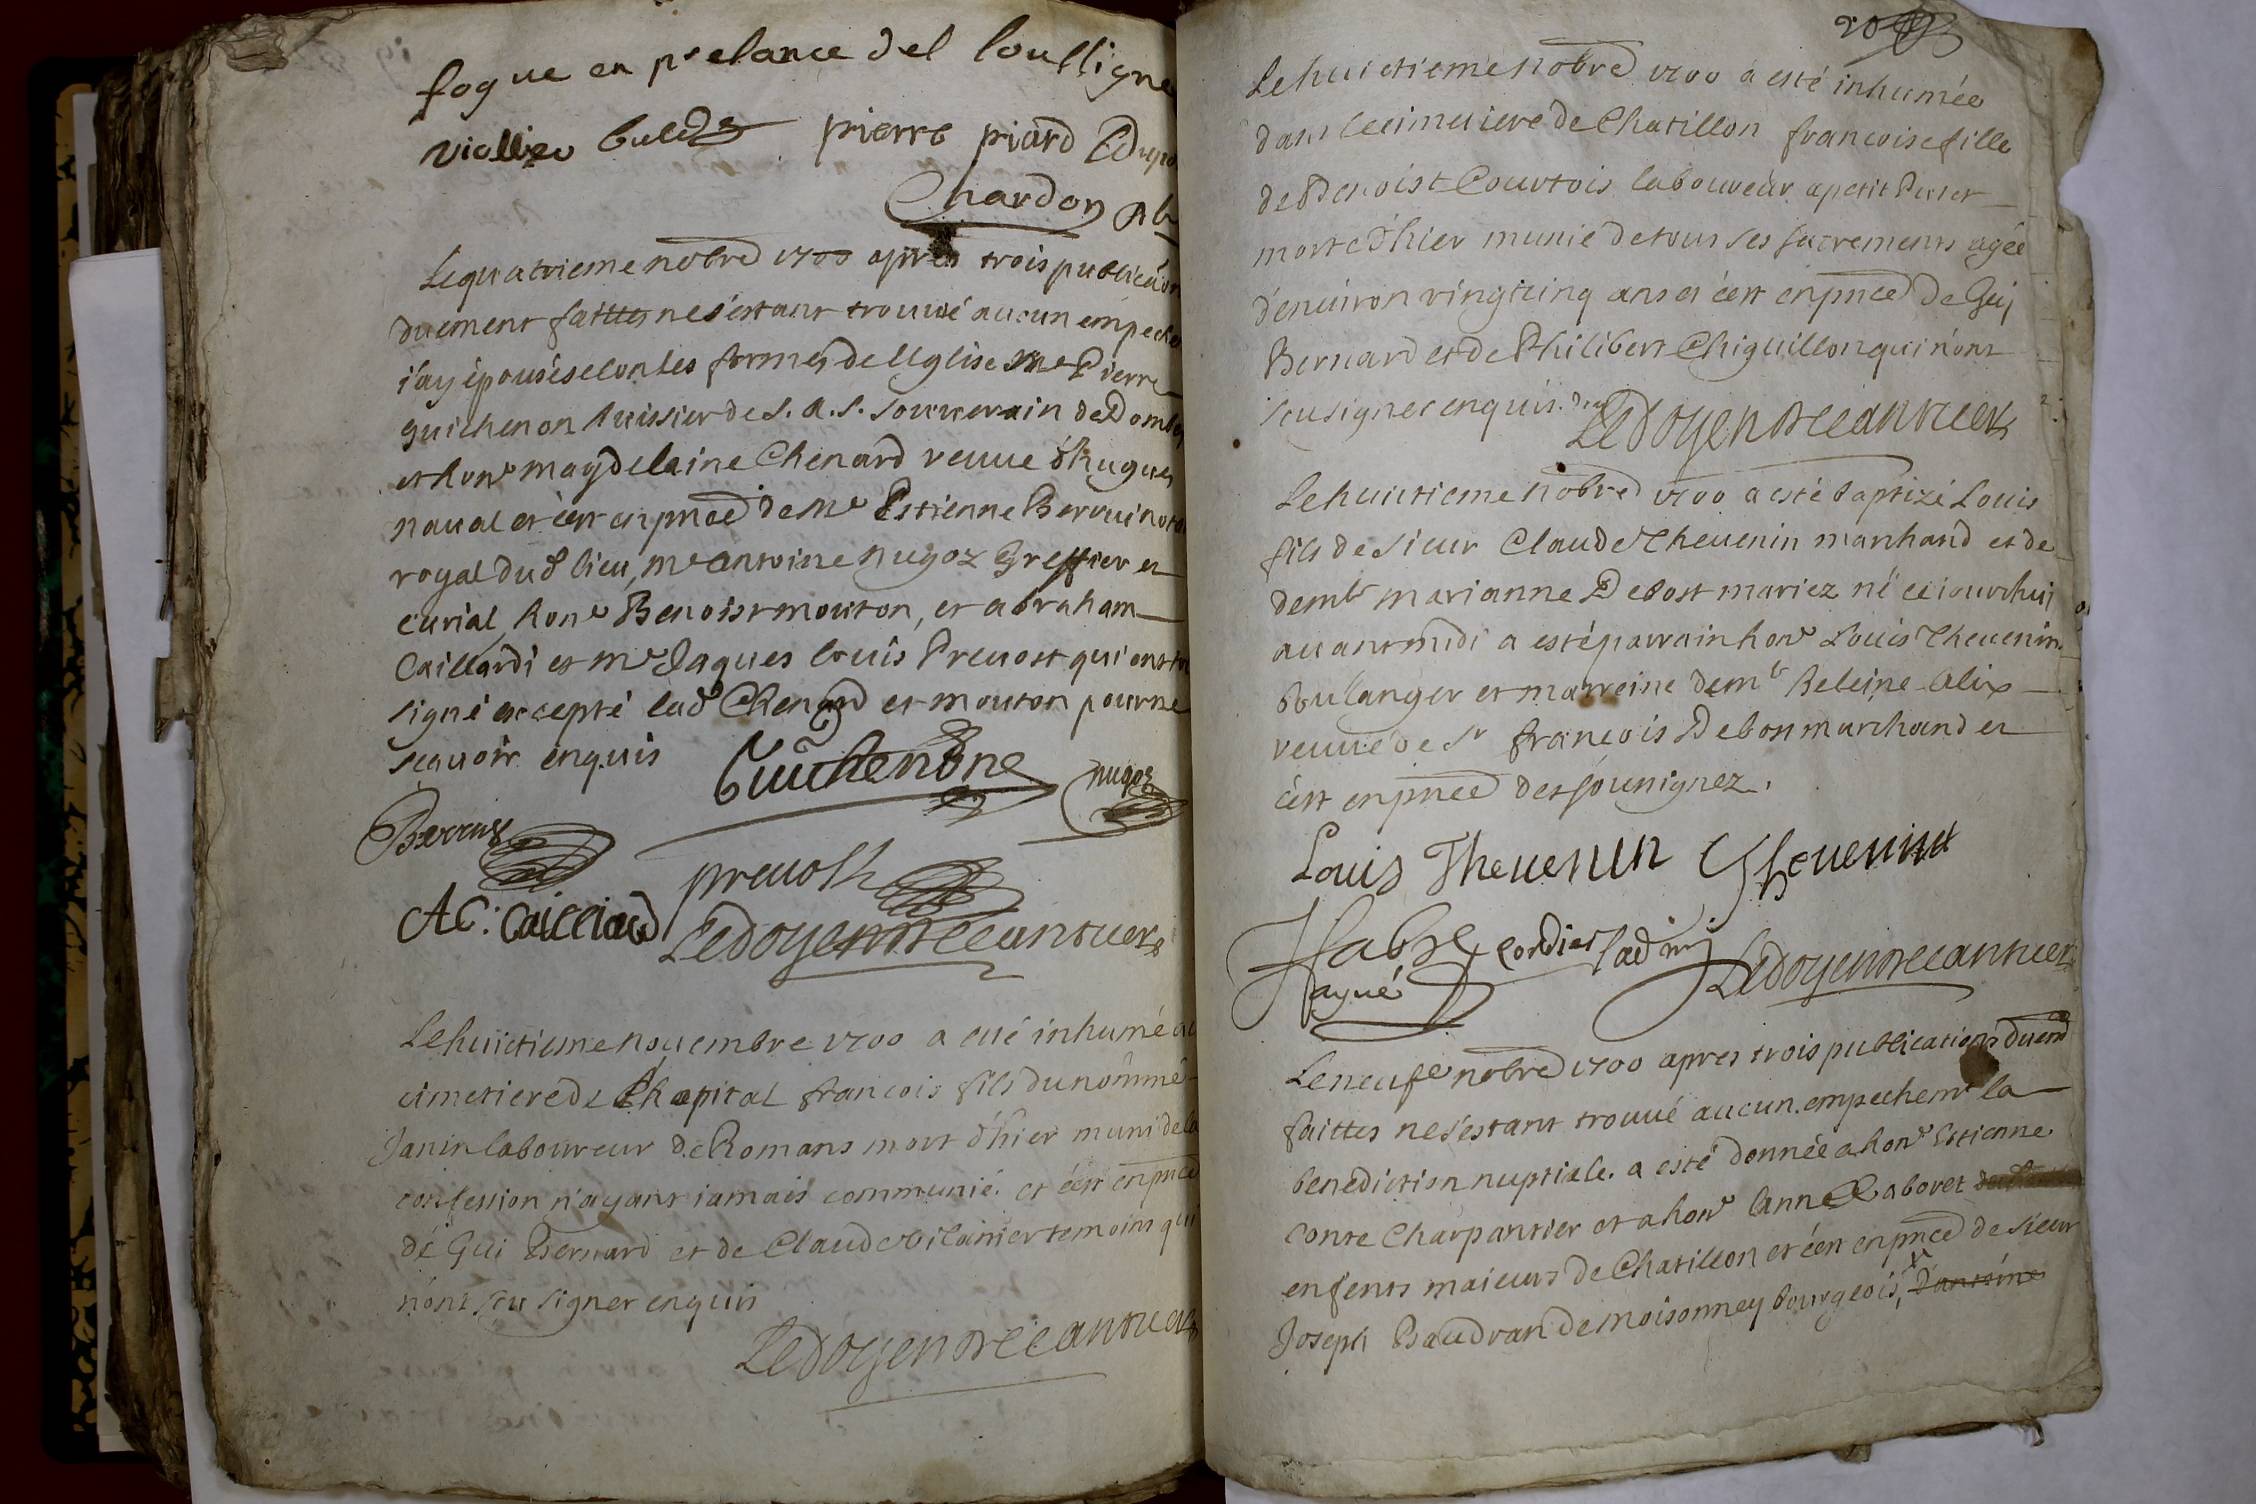 fogue en presance del soussigne
viollieo pierre piard
Chardon
Le quatrieme nobre 1700 apres trois publica͠on
duement faittes ne s'estant trouvé aucun empeche
i'ay épousé selon les formes de l'Eglise Me Pierre
guichenon huissier de S. A. S. souverain de Dombes
et honᵉ magdelaine Chenard veuve d'hugues
naval et c'est en pnce de Me Estienne Berrui notai
royal dud lieu, Me antoine nugoz Greffier et
curial, honᵉ Benoist mouton, et abraham
Caillardi et Me Jaques louis Prevost qui ont
signé excepté lad Chenard et mouton pour ne
scavoir enquis Guichenon nugoz
Berruy
prevost
AC: Cailliard Ledoyen
Le huictieme novembre 1700 a eté inhumé au
cimetiere de l'hopital francois fils du nommé
Janin laboureur de Romans mort d'hier muni de la
confession n'ayant iamais communié. et c'est en pnce
de Gui Bernard et de Claude vilanier temoins qui
n'ont sceu signer enquis
Ledoyen
20
Le huictieme nobre 1700 a esté inhumée
dans le cimetiere de Chatillon francoise fille
de Benoist Courtois laboureur a petit
morte d'hier munie de tous ses sacrements agée
d'environ vingtcinq ans et c'est en pnce de Gui
Bernard et de Philibert Chiguillon qui n'ont
sceu signer enquis. Ledoyen
Le huictieme nobre 1700 a esté baptizé Louis
fils de sieur Claude Thevenin marchand et de
demlle marianne Debost mariez né ce iourdhui
avant midi a esté parrain honᵉ Louis Thevenin
boullanger et marreine demlle heleine Alix
veuve de Sr francois Debost marchand et
c'est en pnce des sousignez.
Louis Thevenin Thevenin
fabre cordier ladmi
ayué Ledoyen
Le neufe nobre 1700 apres trois publications duemt
faittes ne s'estant trouvé aucun empechemt la
benediction nuptiale a esté donnée a honᵉ Estienne
Conte Charpantier et a honᵉ Anne Rabovet
enfents maieurs de Chatillon et c'est en pnce de sieur
Joseph Baudran de moisonney bourgeois, d'antoine